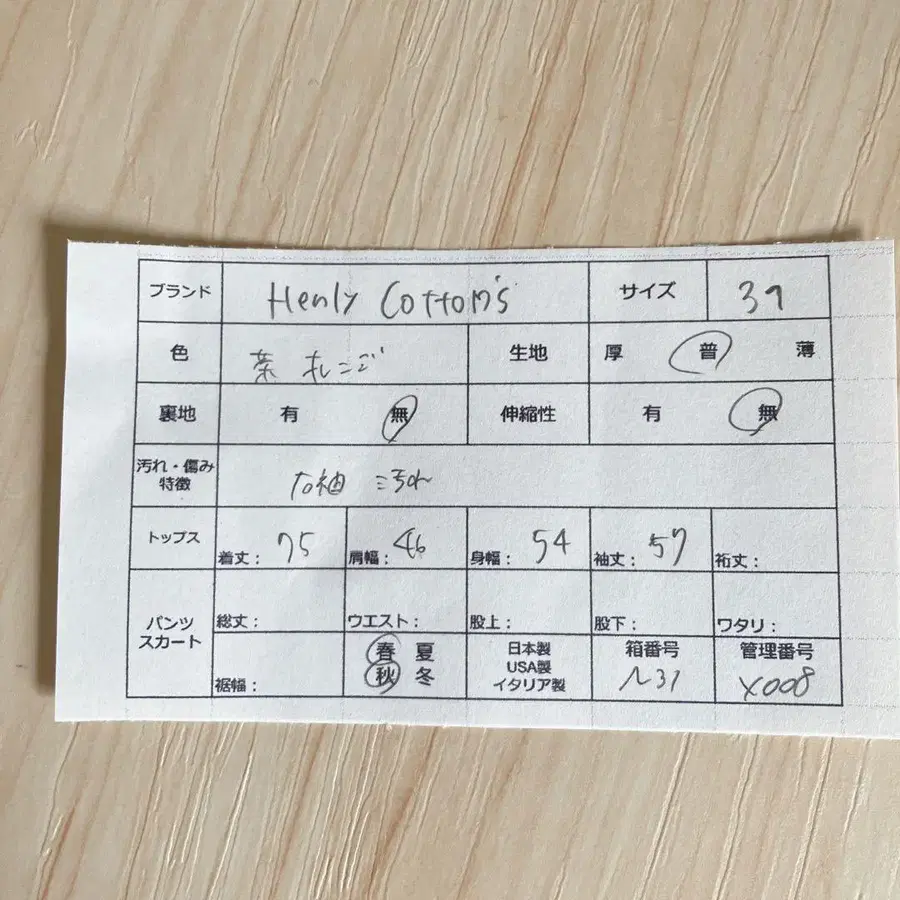 ブランド Henly Cottom's サイズ 39
色 茶 オレンジ 生地 厚 普 薄
裏地 有 無 伸縮性 有 無
汚れ・傷み
特徴 右袖 汚れ
トップス 着丈: 75 肩幅: 46 身幅: 54 袖丈: 57 裄丈:
パンツ
スカート 総丈: ウエスト: 股上: 股下: ワタリ:
裾幅: 春 夏
秋 冬 日本製
USA製
イタリア製 箱番号
N31 管理番号
X008